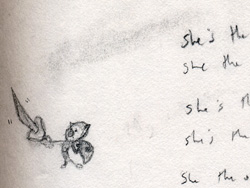 she's the
she the
she's the
she's the
she the